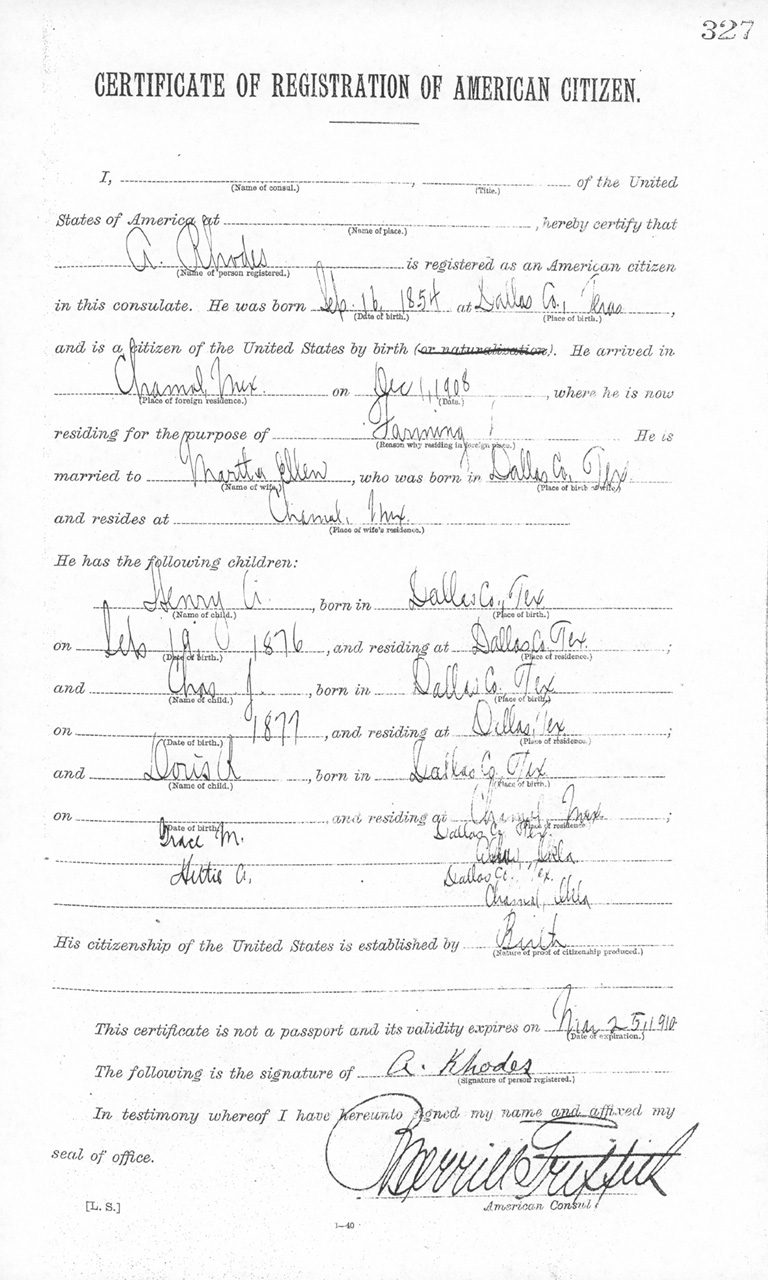 327
CERTIFICATE OF REGISTRATION OF AMERICAN CITIZEN.
I, , of the United
(Name of consul.) (Title.)
States of America at , hereby certify that
(Name of place.)
A. Rhodes is registered as an American citizen
(Name of person registered.)
in this consulate. He was born Sep. 16, 1854 at Dallas Co., Texas,
(Date of birth.) (Place of birth.)
and is a citizen of the United States by birth (or naturalization). He arrived in
Chamal, Mex. on Dec 1, 1908, where he is now
(Place of foreign residence.) (Date.)
residing for the purpose of Farming He is
(Reason why residing in foreign place.)
married to Martha Ellen, who was born in Dallas Co., Tex.
(Name of wife.) (Place of birth of wife.)
and resides at Chamal, Mex.
(Place of wife's residence.)
He has the following children:
Henry A., born in Dallas Co., Tex
(Name of child.) (Place of birth.)
on Sep 19, 1876, and residing at Dallas Co. Tex.;
(Date of birth.) (Place of residence.)
and Chas. J., born in Dallas Co., Tex
(Name of child.) (Place of birth.)
on 1877, and residing at Dallas, Tex;
(Date of birth.) (Place of residence.)
and Doris A, born in Dallas Co., Tex.
(Name of child.) (Place of birth.)
on and residing at Chamal, Mex.;
(Date of birth.) (Place of residence.)
Grace M. Dallas Co. Tex.
Okla
Hettie A. Dallas Co. Tex.
Chamal,
His citizenship of the United States is established by Birth
(Nature of proof of citizenship produced.)
This certificate is not a passport and its validity expires on Mar 25, 1910
(Date of expiration.)
The following is the signature of A. Rhodes
(Signature of person registered.)
In testimony whereof I have hereunto signed my name and affixed my
seal of office.
American Consul
[L. S.]
1—40